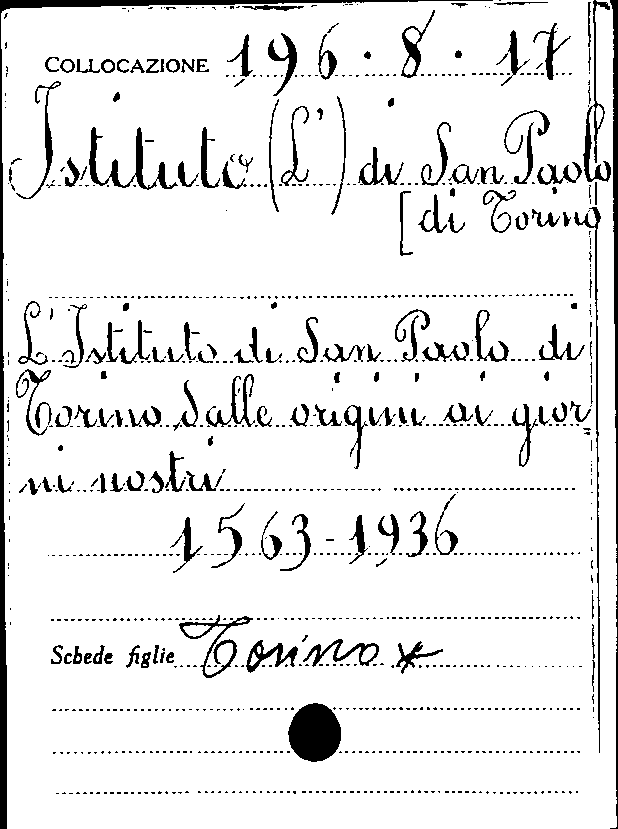 COLLOCAZIONE 196.8.17
Istituto (L') di San Paolo
[di Torino
L'Istituto di San Paolo di
Torino dalle origini ai gior
ni nostri
1563-1936
Schede figlie Torino *